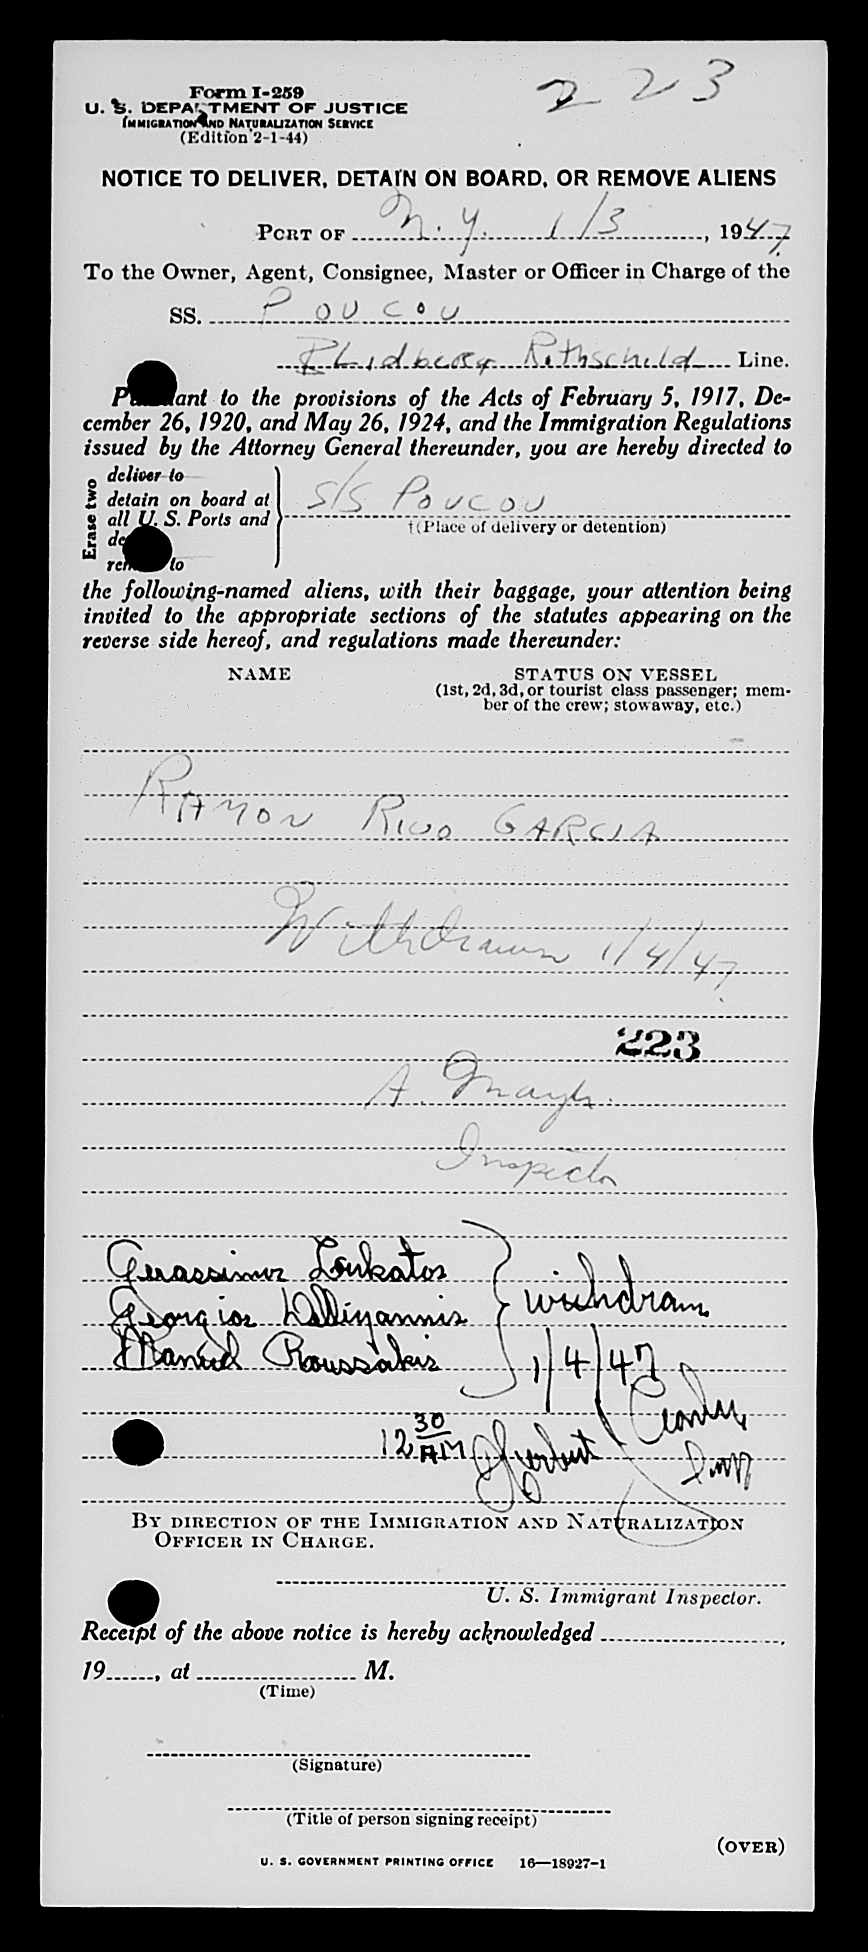 223
Form I-259
U. S. DEPARTMENT OF JUSTICE
IMMIGRATION AND NATURALIZATION SERVICE
(Edition 2-1-44)
NOTICE TO DELIVER, DETAIN ON BOARD, OR REMOVE ALIENS
PORT OF N.Y. 1/3, 1947
To the Owner, Agent, Consignee, Master or Officer in Charge of the
SS. Poucou
Rothschild Line.
Pursuant to the provisions of the Acts of February 5, 1917, De-
cember 26, 1920, and May 26, 1924, and the Immigration Regulations
issued by the Attorney General thereunder, you are hereby directed to
Erase two
deliver to
detain on board at
all U. S. Ports and
remove to
S/S Poucou
†(Place of delivery or detention)
the following-named aliens, with their baggage, your attention being
invited to the appropriate sections of the statutes appearing on the
reverse side hereof, and regulations made thereunder:
NAME
STATUS ON VESSEL
(1st, 2d, 3d, or tourist class passenger; mem-
ber of the crew; stowaway, etc.)
RAMON RIVO GARCIA
Withdrawn 1/4/47
223
A.
Inspector
Gerassimos Loukatos
Georgios Delliyannis
Manuel Roussakis
withdrawn
1/4/47
12 30 AM
BY DIRECTION OF THE IMMIGRATION AND NATURALIZATION
OFFICER IN CHARGE.
U. S. Immigrant Inspector.
Receipt of the above notice is hereby acknowledged
19, at M.
(Time)
(Signature)
(Title of person signing receipt)
(OVER)
U. S. GOVERNMENT PRINTING OFFICE 16—18927-1